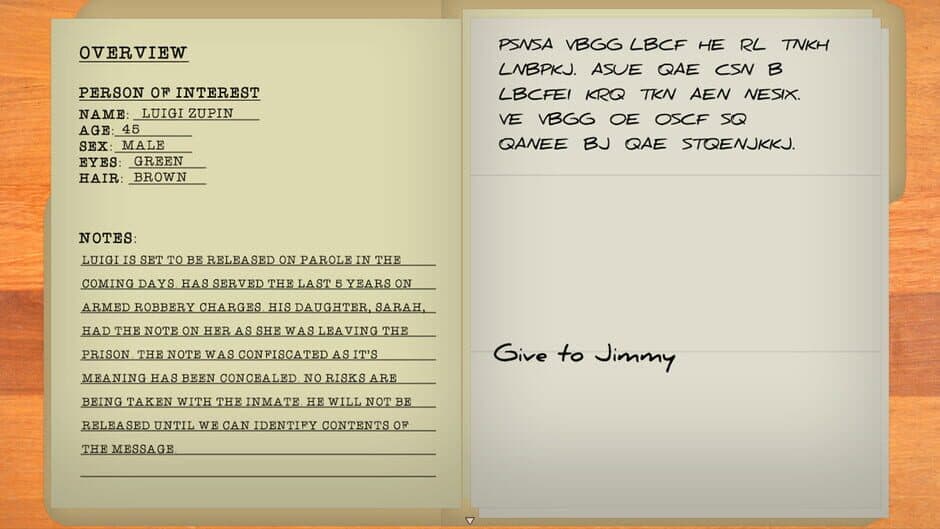 OVERVIEW
PERSON OF INTEREST
NAME: LUIGI ZUPIN
AGE: 45
SEX: MALE
EYES: GREEN
HAIR: BROWN
NOTES:
LUIGI IS SET TO BE RELEASED ON PAROLE IN THE
COMING DAYS. HAS SERVED THE LAST 5 YEARS ON
ARMED ROBBERY CHARGES. HIS DAUGHTER, SARAH,
HAD THE NOTE ON HER AS SHE WAS LEAVING THE
PRISON. THE NOTE WAS CONFISCATED AS IT'S
MEANING HAS BEEN CONCEALED. NO RISKS ARE
BEING TAKEN WITH THE INMATE. HE WILL NOT BE
RELEASED UNTIL WE CAN IDENTIFY CONTENTS OF
THE MESSAGE.
PSNSA VBGG LBCF HE RL TNKH
LNBPKJ. ASUE QAE CSN B
LBCFEI KRQ TKN AEN NESIX.
VE VBGG OE OSCF SQ
QANEE BJ QAE STQENJKKJ.
Give to Jimmy